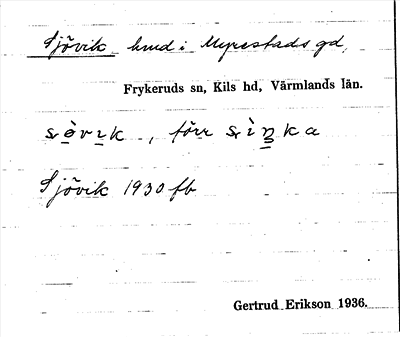 Sjövik hmd i Myrestads gd,
Frykeruds sn, Kils hd, Värmlands län.
sø̀vɩk, förr sìŋka
Sjövik 1930 fb
Gertrud Erikson 1936.